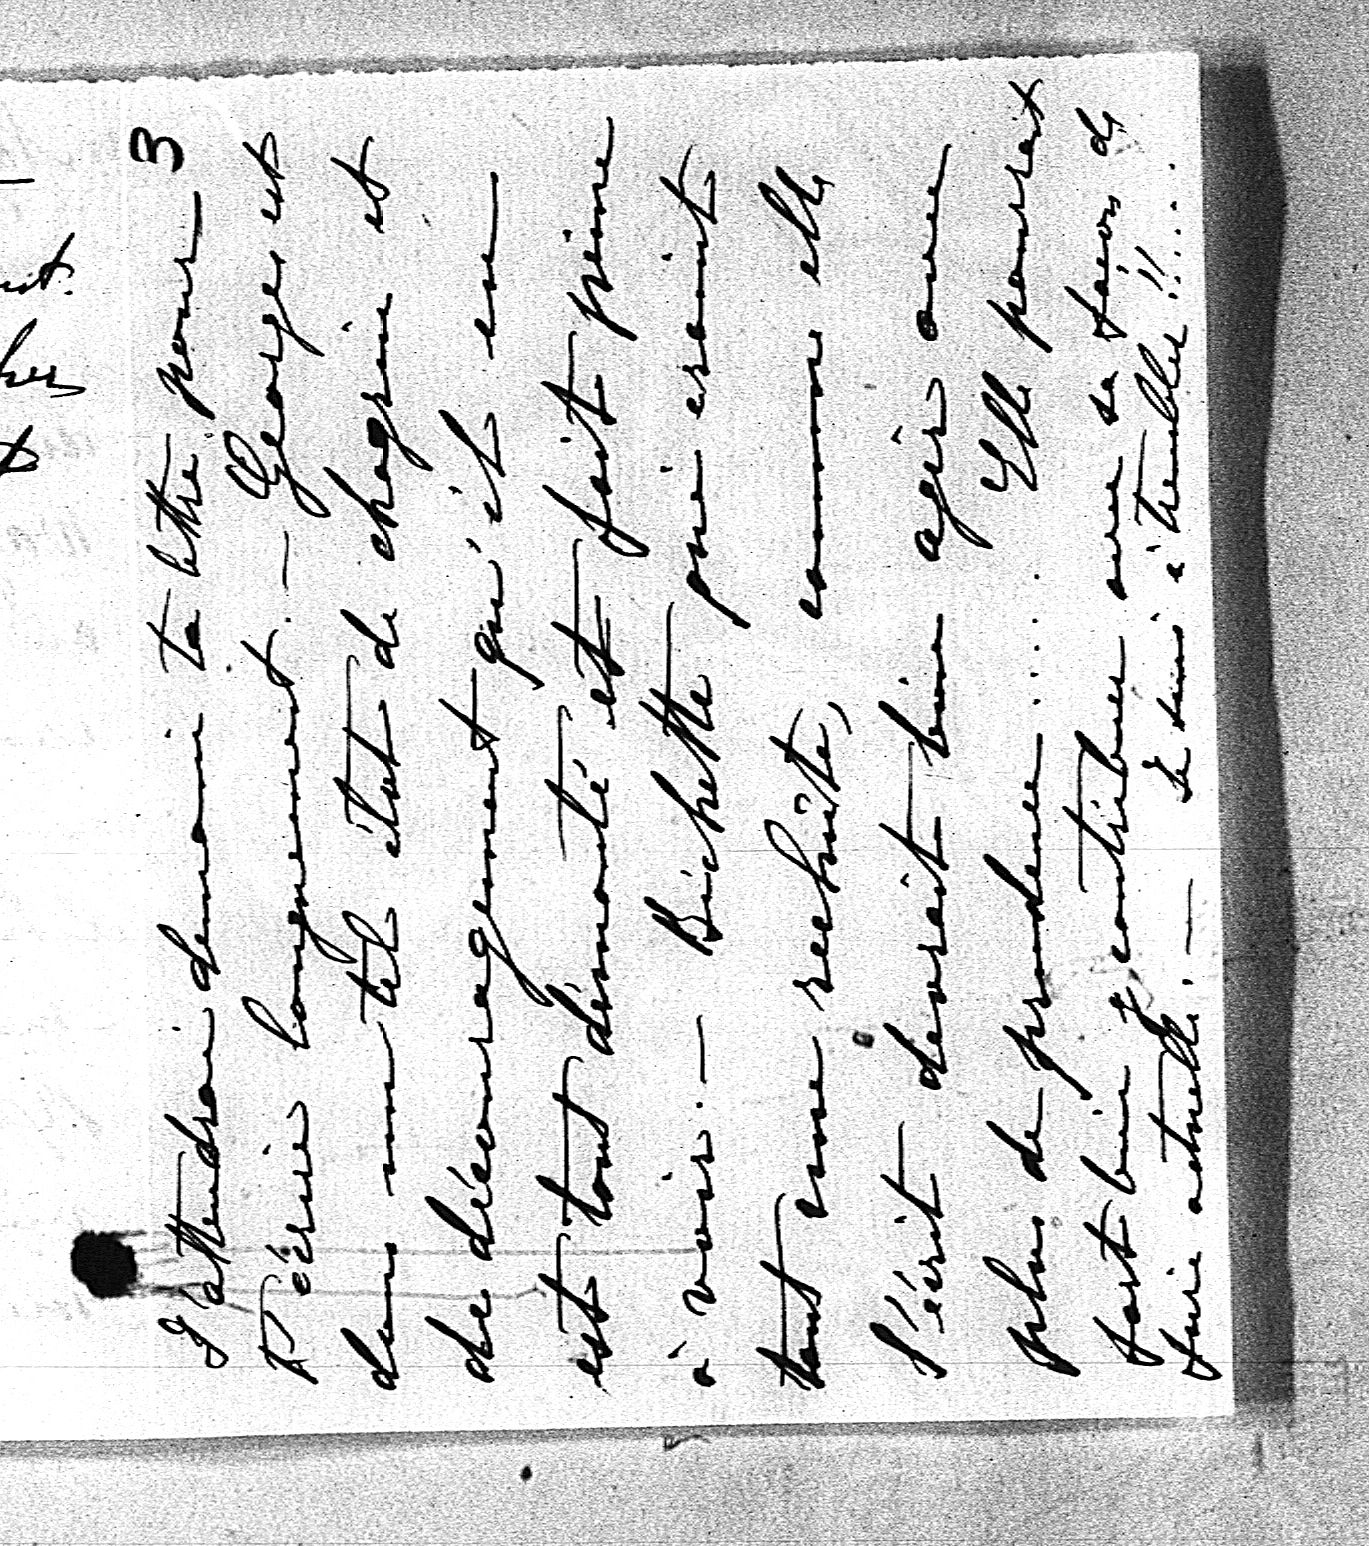 3
J'attendrai demain ta lettre pour
T'écrire longuement. — Georges est
dans un tel état de chagrin et
de découragement qu'il en
est tout démonté et fait peine
à voir. — Bichette qui craint
tant une rechute, comme elle
l'écrit devrait bien agir avec
plus de prudence..... Elle pourrait
fort bien y contribuer avec sa façon de
faire actuelle. — Je suis à trembler!!...